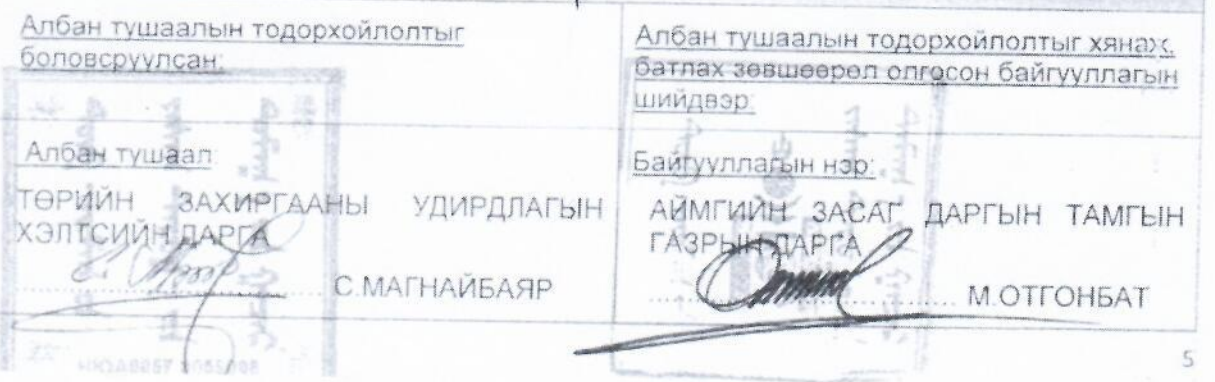 Албан тушаалын тодорхойлолтыг
боловсруулсан:
Албан тушаал:
ТӨРИЙН ЗАХИРГААНЫ УДИРДЛАГЫН
ХЭЛТСИЙН ДАРГА
С.МАГНАЙБАЯР
Албан тушаалын тодорхойлолтыг хянаж,
батлах зөвшөөрөл олгосон байгууллагын
шийдвэр:
Байгууллагын нэр:
АЙМГИЙН ЗАСАГ ДАРГЫН ТАМГЫН
ГАЗРЫН ДАРГА
М.ОТГОНБАТ
5